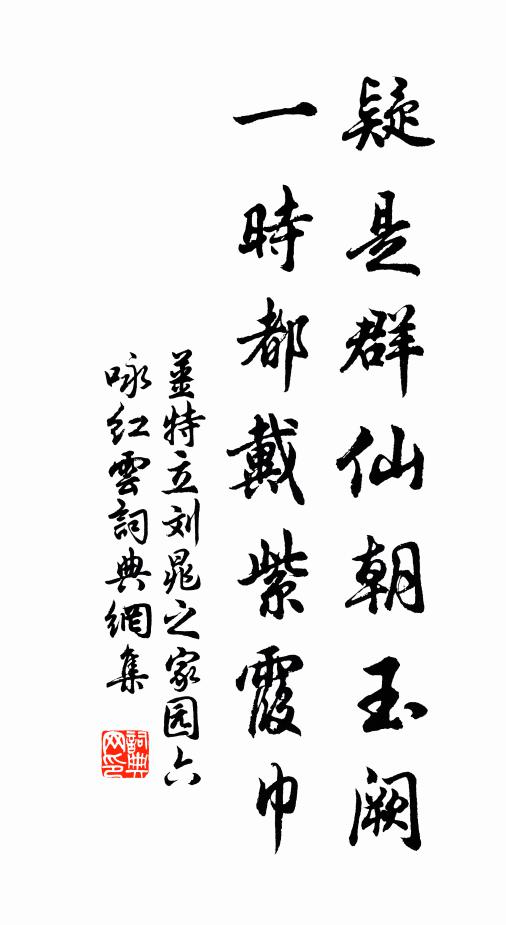 疑是群仙朝玉阙
一時都戴紫霞巾
姜特立刘晁之家园六
咏红雲詞典網集
詞典網印